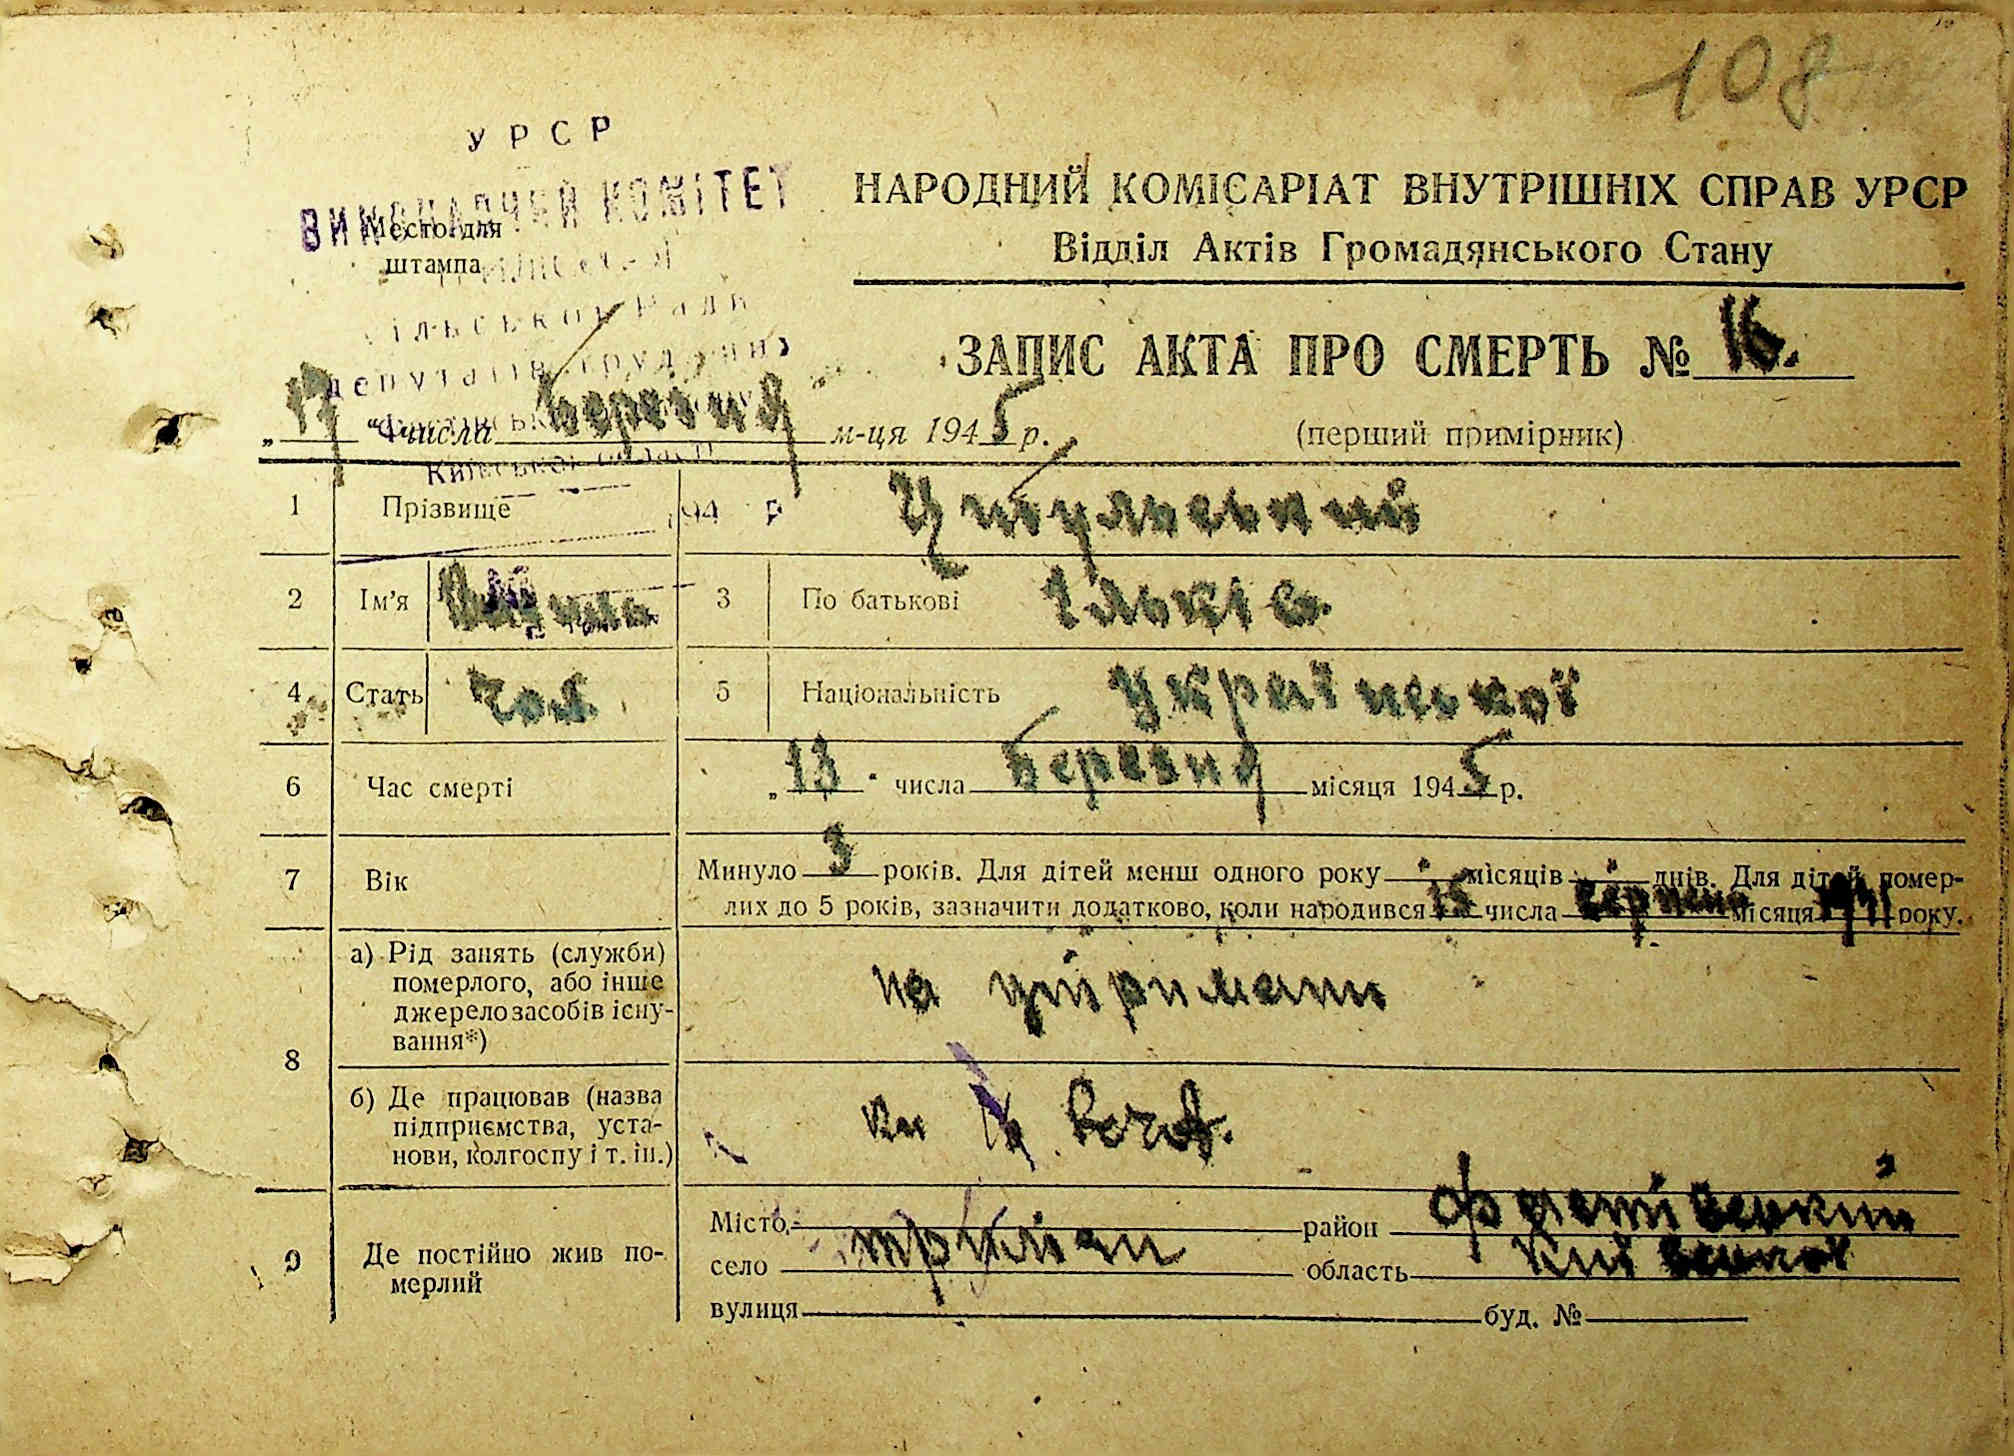 108
УРСР
ВИКОНАВЧИЙ КОМІТЕТ
Место для
штампа
сільської Ради
депутатів трудящих
Київської області
194 р
НАРОДНИЙ КОМІСАРІАТ ВНУТРІШНІХ СПРАВ УРСР
Відділ Актів Громадянського Стану
ЗАПИС АКТА ПРО СМЕРТЬ № 16.
„17“ числа березня м-ця 1945 р. (перший примірник)
1 Прізвище Цибульський
2 Ім'я 3 По батькові Ількіо.
4 Стать чол. 5 Національність Української
6 Час смерті „13“ числа березня місяця 1945 р.
7 Вік Минуло 3 років. Для дітей менш одного року - місяців - днів. Для дітей помер-
лих до 5 років, зазначити додатково, коли народився 15 числа серпень місяця 1941 року.
8 а) Рід занять (служби)
померлого, або інше
джерело засобів існу-
вання*)
на утриманні
б) Де працював (назва
підприємства, уста-
нови, колгоспу і т. ін.)
9 Де постійно жив по-
мерлий
Місто район Фастівський
село триліси область Київської
вулиця буд. №